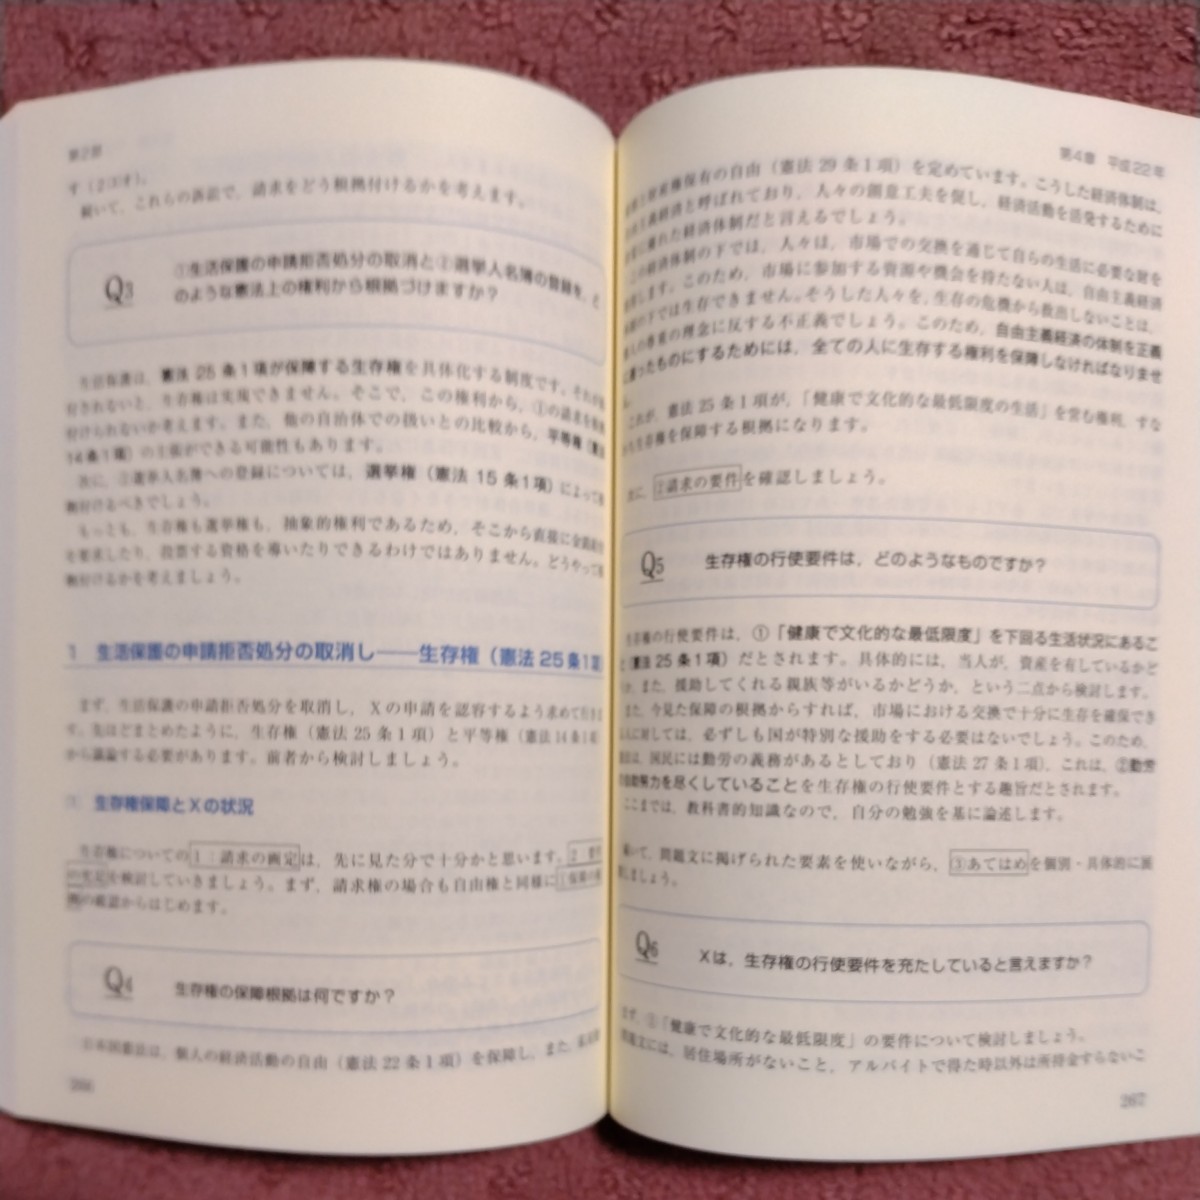 第2部
す（2⑦す）。
続いて、これらの訴訟で、請求をどう根拠付けるかを考えます。
Q3
①生活保護の申請拒否処分の取消と②選挙人名簿の登録を、ど
のような憲法上の権利から根拠づけますか？
生活保護は、憲法 25 条1項が保障する生存権を具体化する制度です。それが
付されないと、生存権は実現できません。そこで、この権利から、①の請求を
付けられないか考えます。また、他の自治体での扱いとの比較から、平等権（憲法
14条1項）の主張ができる可能性もあります。
次に、②選挙人名簿への登録については、選挙権（憲法 15 条1項）によって
拠付けるべきでしょう。
もっとも、生存権も選挙権も、抽象的権利であるため、そこから直接に金銭
を要求したり、投票する資格を導いたりできるわけではありません。どうやって
拠付けるかを考えましょう。
1　生活保護の申請拒否処分の取消し――生存権（憲法 25 条1項
まず、生活保護の申請拒否処分を取消し、Xの申請を認容するよう求めて
す。先ほどまとめたように、生存権（憲法 25 条1項）と平等権（憲法 14 条1項）
から議論する必要があります。前者から検討しましょう。
生存権保障とXの状況
生存権についての1：請求の画定は、先に見た分で十分かと思います。2
を検討していきましょう。まず、請求権の場合も自由権と同様に①保障の根
拠の確認からはじめます。
Q4
生存権の保障根拠は何ですか？
日本国憲法は、個人の経済活動の自由（憲法 22 条1項）を保障し、また、
266
第4章　平成22年
財産権保有の自由（憲法 29 条1項）を定めています。こうした経済体制は、
主義経済と呼ばれており、人々の創意工夫を促し、経済活動を活発するために
優れた経済体制だと言えるでしょう。
この経済体制の下では、人々は、市場での交換を通じて自らの生活に必要な財を
します。このため、市場に参加する資源や機会を持たない人は、自由主義経済
の下では生存できません。そうした人々を、生存の危機から救出しないことは、
人の尊重の理念に反する不正義でしょう。このため、自由主義経済の体制を正義
ったものにするためには、全ての人に生存する権利を保障しなければなりませ
ん。
これが、憲法 25 条1項が、「健康で文化的な最低限度の生活」を営む権利、すな
わち生存権を保障する根拠になります。
次に、②請求の要件を確認しましょう。
Q5
生存権の行使要件は、どのようなものですか？
生存権の行使要件は、①「健康で文化的な最低限度」を下回る生活状況にあるこ
と（憲法 25 条1項）だとされます。具体的には、当人が、資産を有しているかど
うか、また、援助してくれる親族等がいるかどうか、という二点から検討します。
また、今見た保障の根拠からすれば、市場における交換で十分に生存を確保でき
る人に対しては、必ずしも国が特別な援助をする必要はないでしょう。このため、
憲法は、国民には勤労の義務があるとしており（憲法 27 条1項）、これは、②勤労
の自助努力を尽くしていることを生存権の行使要件とする趣旨だとされます。
ここまでは、教科書的知識なので、自分の勉強を基に論述します。
続いて、問題文に掲げられた要素を使いながら、③あてはめを個別・具体的に展
開しましょう。
Q6
Xは、生存権の行使要件を充たしていると言えますか？
まず、①「健康で文化的な最低限度」の要件について検討しましょう。
問題文には、居住場所がないこと、アルバイトで得た時以外は所持金すらないこ
267